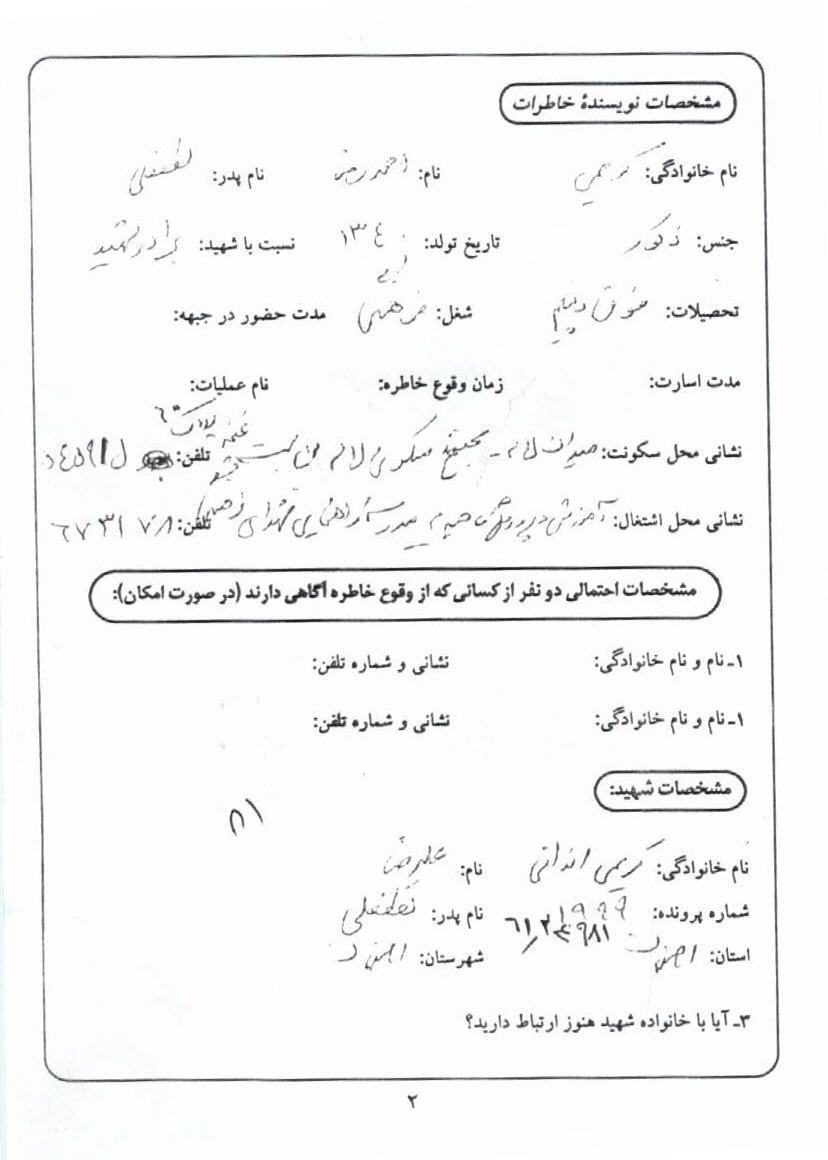 مشخصات نویسندهٔ خاطرات
نام خانوادگی: کریمی نام: احمدرضا نام پدر: لطفعلی
جنس: ذکور تاریخ تولد: ۱۳۴۰ نسبت با شهید: برادر شهید
تحصیلات: فوق دیپلم شغل: فرهنگی مدت حضور در جبهه:
مدت اسارت: زمان وقوع خاطره: نام عملیات:
نشانی محل سکونت: میدان لاله - مجتمع مسکونی لاله پلاک ۶۰ تلفن:
نشانی محل اشتغال: آموزش و پرورش ناحیه مدرسه راهنمایی شهدای تلفن: ۶۷۳۱۷۸
مشخصات احتمالی دو نفر از کسانی که از وقوع خاطره آگاهی دارند (در صورت امکان):
۱ـ نام و نام خانوادگی: نشانی و شماره تلفن:
۱ـ نام و نام خانوادگی: نشانی و شماره تلفن:
مشخصات شهید:
۸۱
نام خانوادگی: کریمی اندانی نام: علیرضا
شماره پرونده: نام پدر: لطفعلی
استان: اصفهان شهرستان: اصفهان
۳ـ آیا با خانواده شهید هنوز ارتباط دارید؟
۲